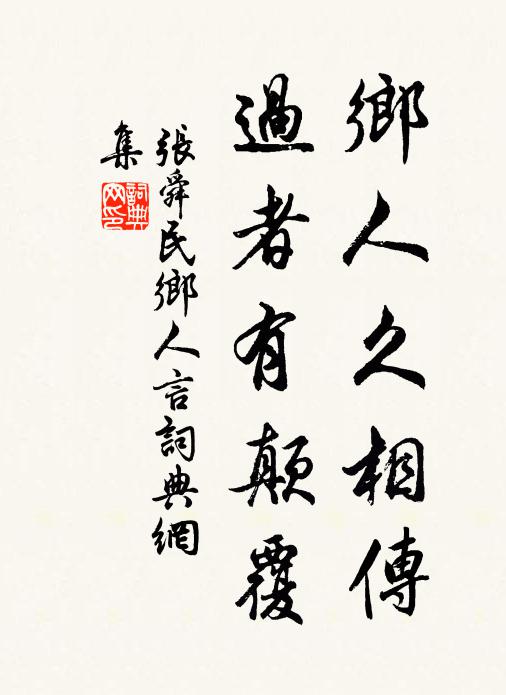 鄉人久相傳
過者有顛覆
張舜民鄉人言詞典網
集
詞典
网印